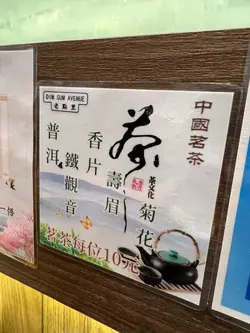 DIM SUM AVENUE
老點里
中國茗茶
茶
茶文化
菊花
壽眉
香片
鐵觀音
普洱
茗茶每位10元